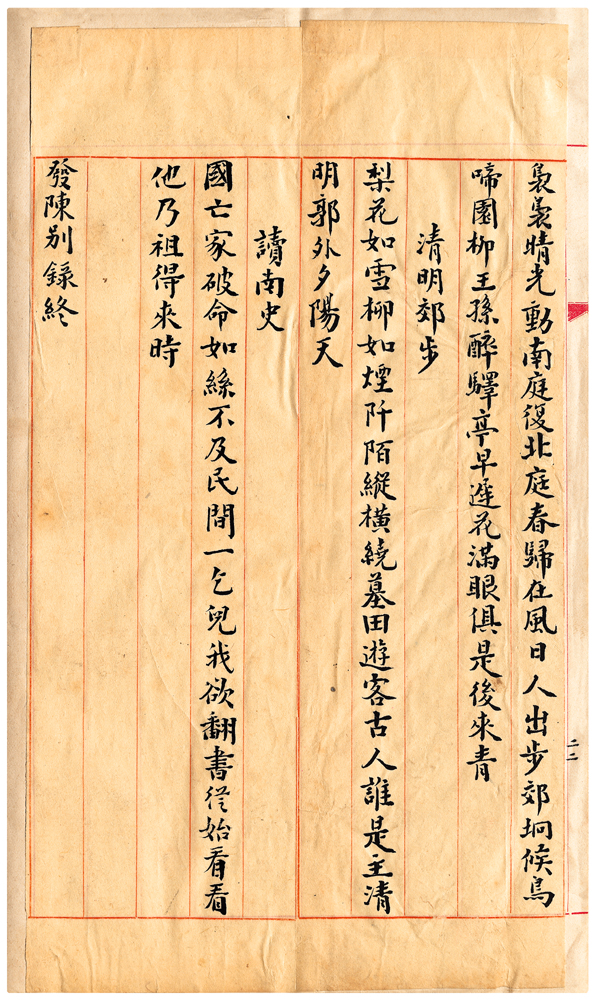 裊裊晴光動南庭復北庭春歸在風日人出步郊坰候鳥
啼園柳王孫醉驛亭早遲花滿眼俱是後來青
清明郊步
梨花如雪柳如煙阡陌縱橫繞墓田遊客古人誰是主清
明郭外夕陽天
讀南史
國亡家破命如絲不及民間一乞兒我欲翻書從始看看
他乃祖得來時
發陳別錄終
二二